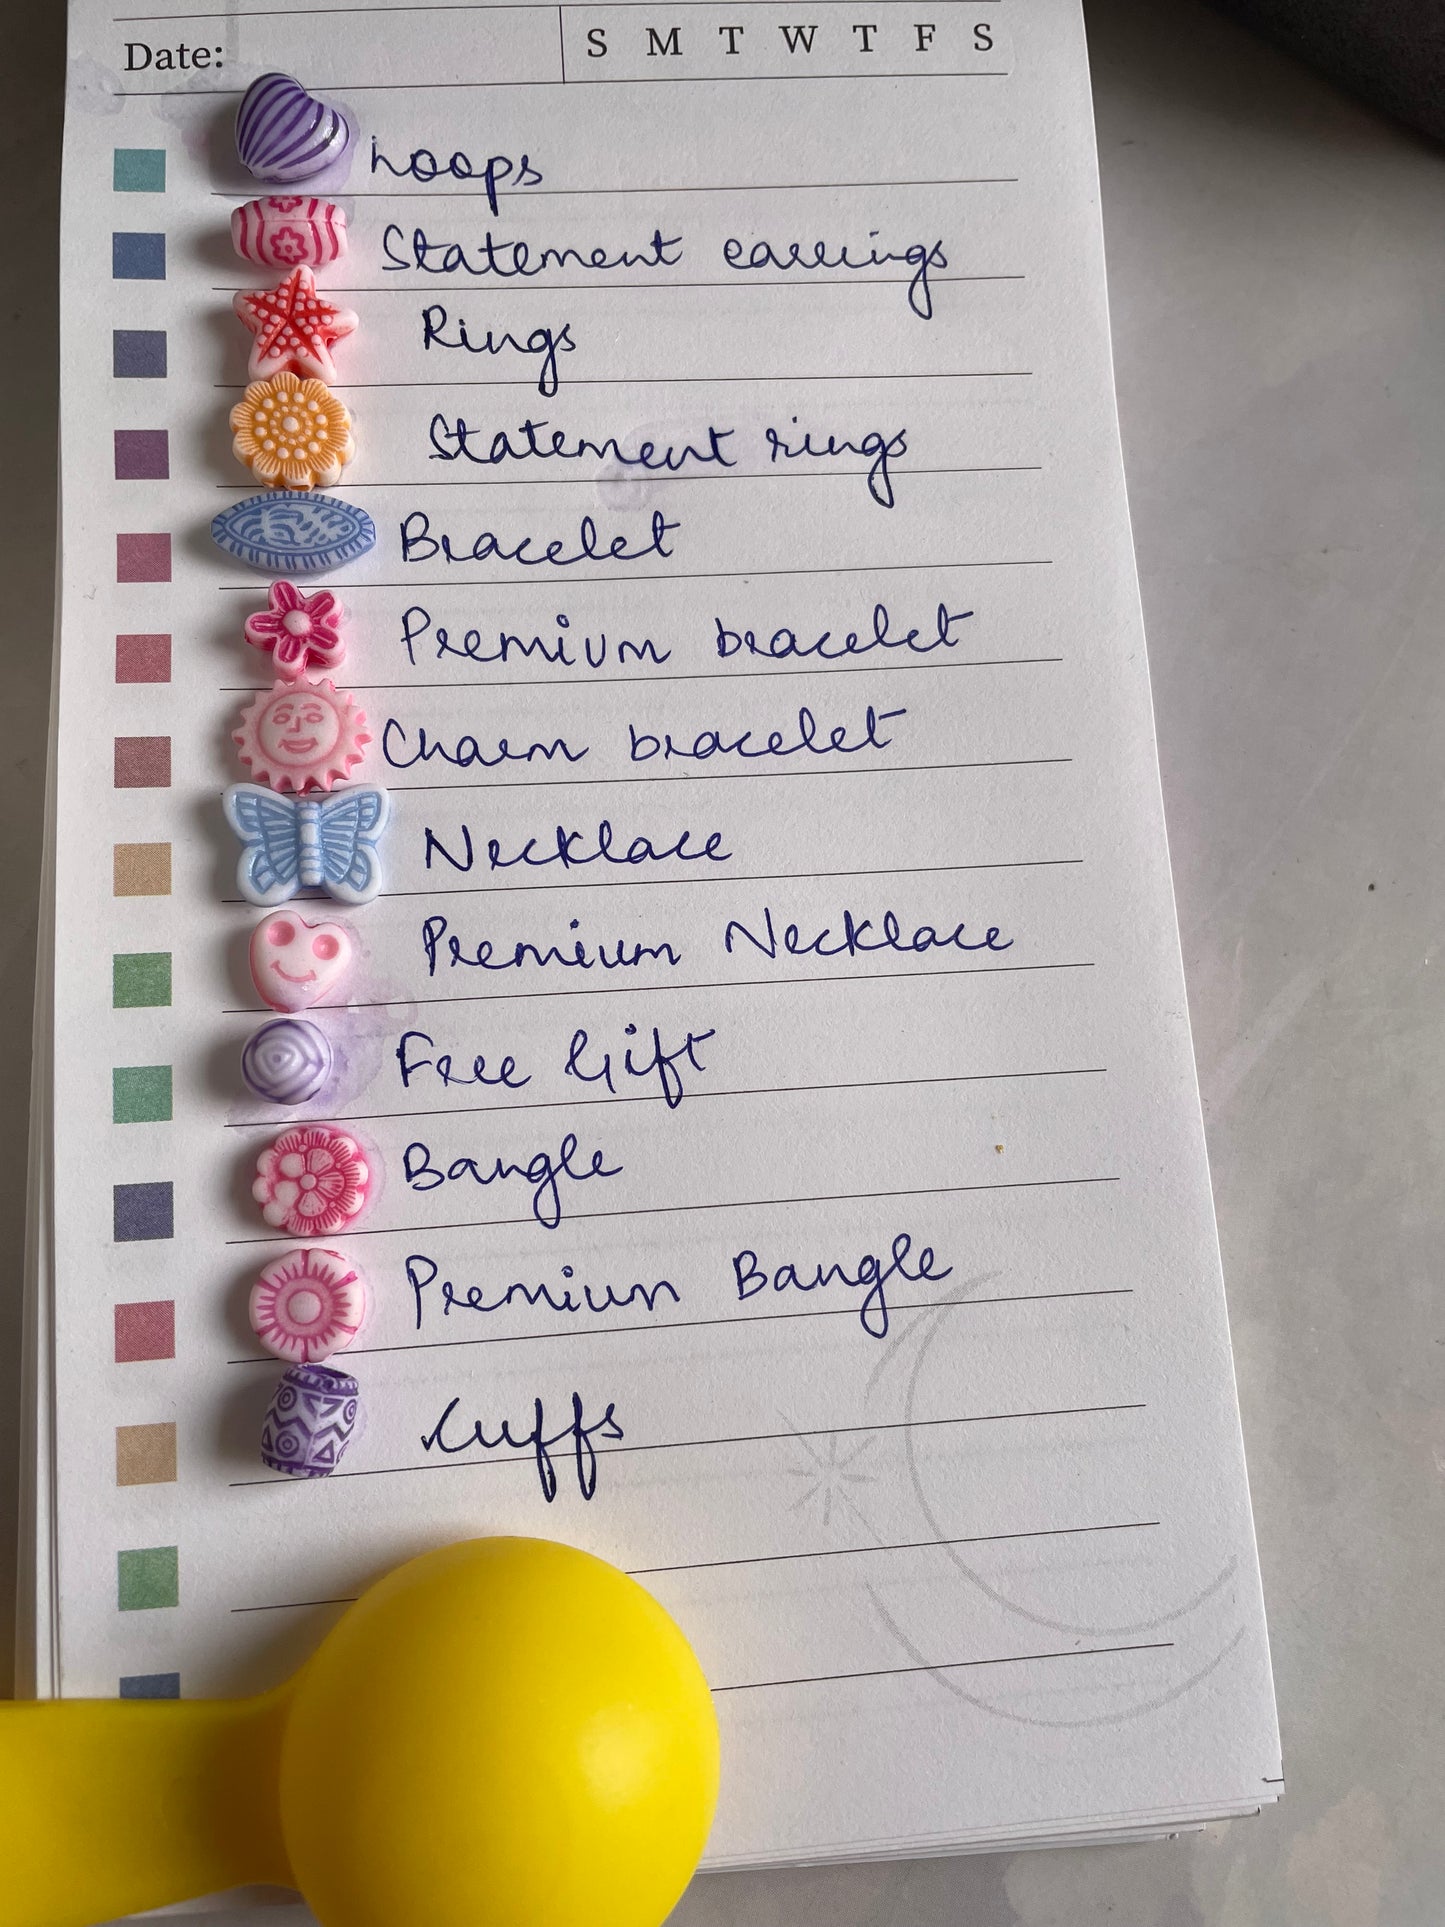 Date: S M T W T F S
hoops
Statement earrings
Rings
Statement rings
Bracelet
Premium bracelet
Charm bracelet
Necklace
Premium Necklace
Free Gift
Bangle
Premium Bangle
Cuffs